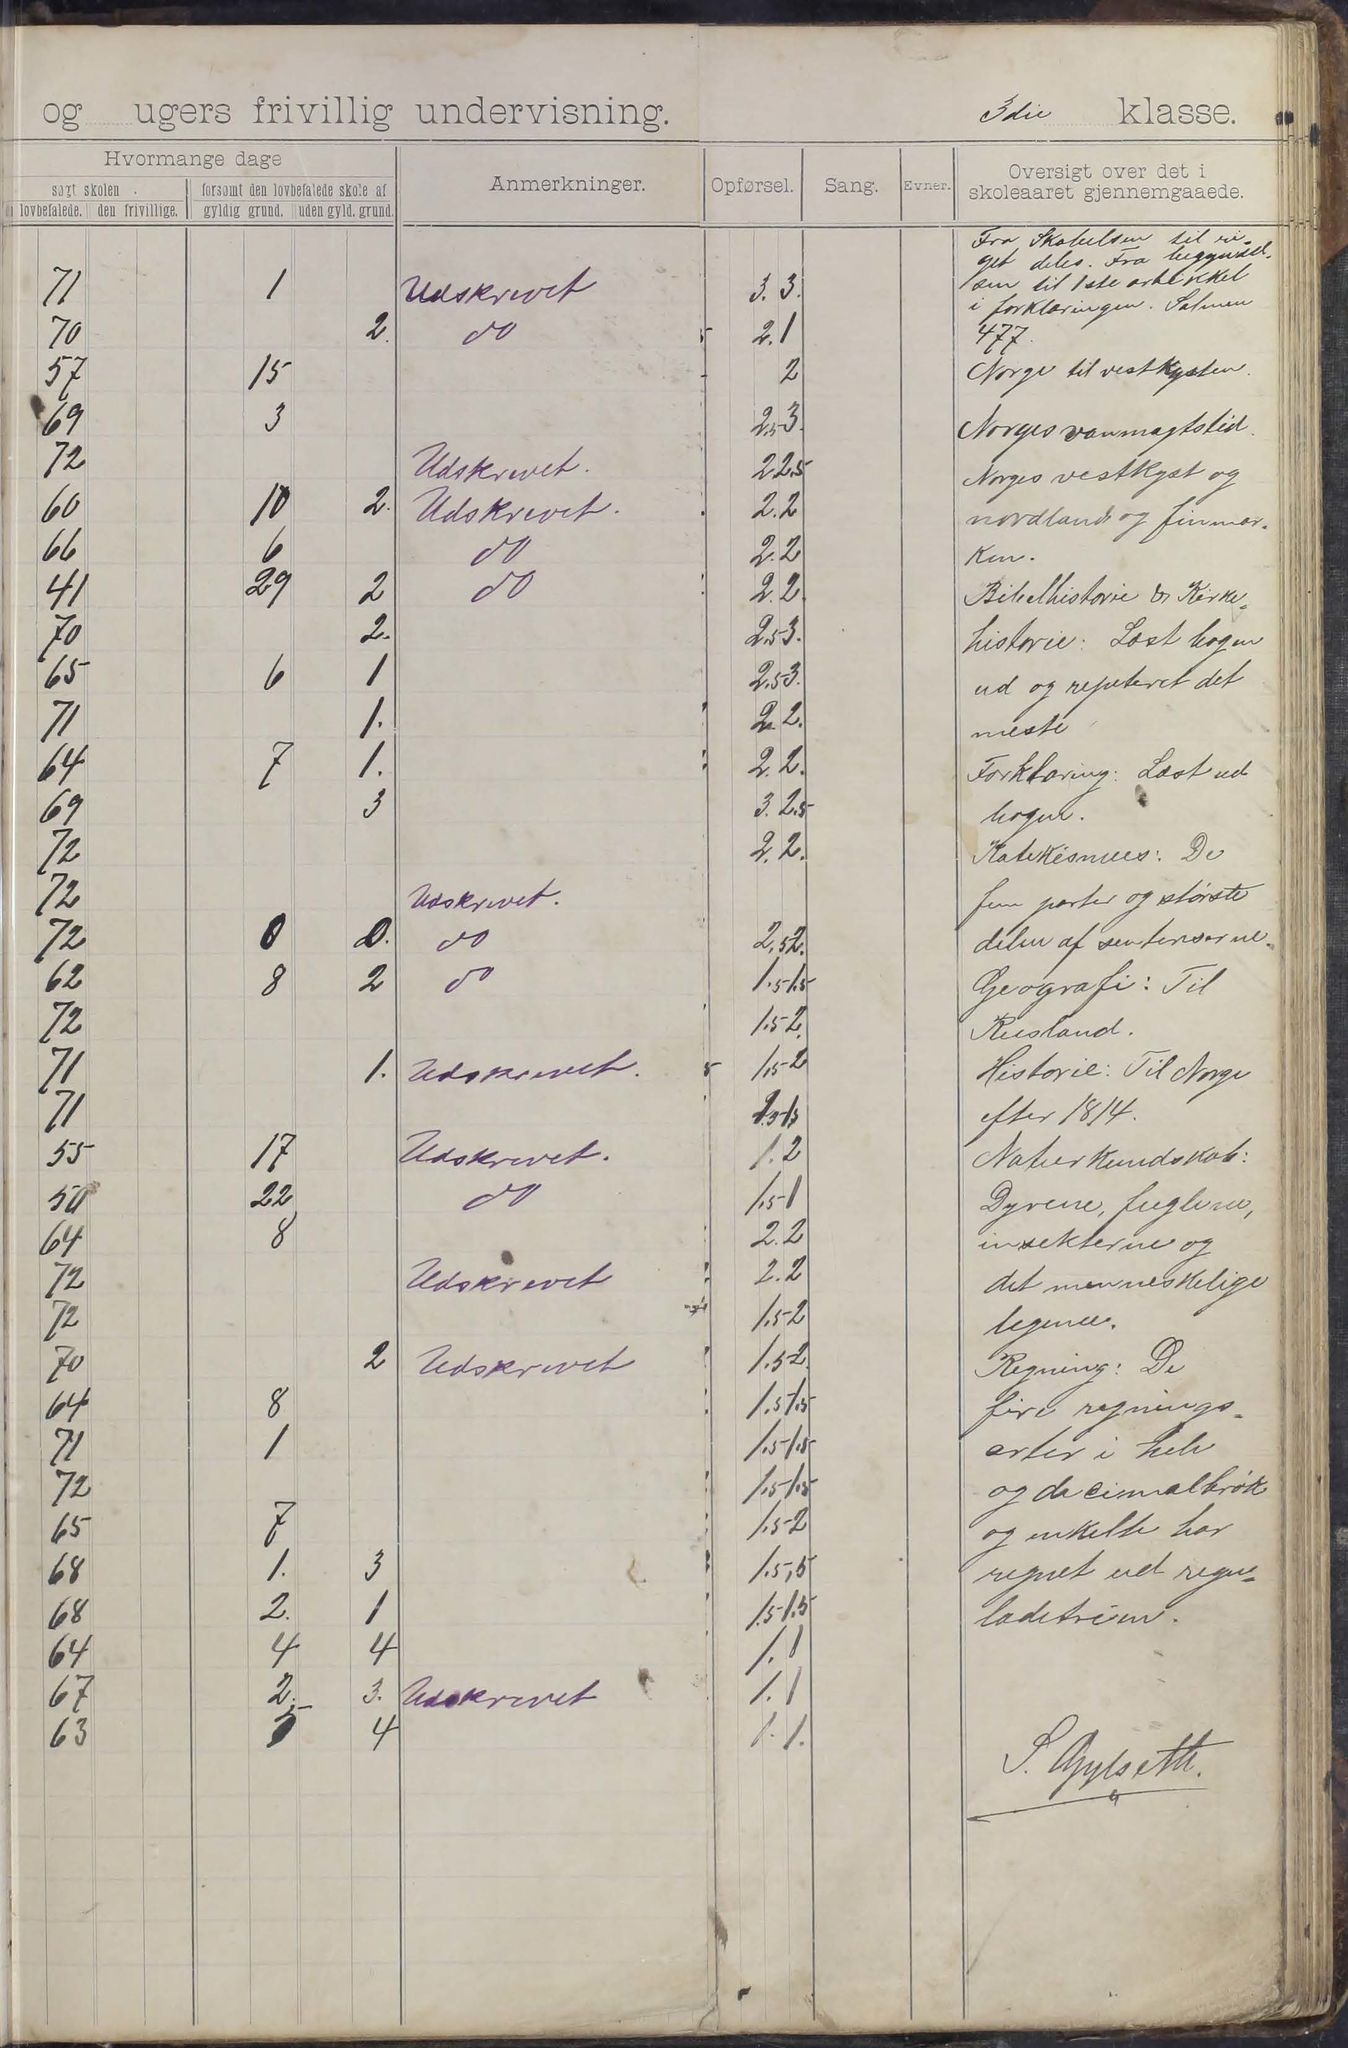 og ugers frivillig undervisning. 3die klasse.
Hvormange dage
søgt skolen
forsømt den lovbefalede skole af
lovbefalede. den frivillige. gyldig grund. uden gyld. grund.
Anmerkninger. Opførsel. Sang. Evner.
Oversigt over det i
skoleaaret gjennemgaaede.
71 1 Udskrevet 3. 3.
70 2. do 2.1
57 15 2
69 3 2.5 3.
72 Udskrevet. 2 2.5
60 10 2. Udskrevet. 2.2
66 6 do 2.2
41 29 2 do 2.2.
70 2. 2.5 3.
65 6 1 2.5 3.
71 1. 2.2.
64 7 1. 2.2.
69 3 3. 2.5
72 2.2.
72 Udskrevet.
72 0 0. do 2.5 2.
62 8 2 do 1.5 1.5
72 1.5 2.
71 1. Udskrevet. 1.5 2
71
55 17 Udskrevet. 1.2
50 22 do 1.5 1
64 8 2.2
72 Udskrevet 2.2
72 1.5 2
70 2 Udskrevet 1.5 2.
64 8 1.5 1.5
71 1 1.5 1.5
72 1.5 1.5
65 7 1.5 2
68 1. 3 1.5,5
68 2. 1 1.5 1.5
64 4 4 1.1
67 2. 3. Udskrevet 1.1
63 5 4 1.1.
Fra Skabelsen til ri-
get deles. Fra begyndel-
sen til 1ste artikkel
i forklaringen. Salmen
477.
Norge til vestkysten.
Norges vanmagtstid.
Norges vestkyst og
nordland og finmar-
ken.
Bibelhistorie & Kirke-
historie: Læst bogen
ud og repeteret det
meste
Forklaring: Læst ud
bogen.
Katekismus: De
fem parter og største
delen af sentenserne.
Geografi: Til
Rusland.
Historie: Til Norge
efter 1814.
Naturkundskab:
Dyrene, fuglene,
insekterne og
det menneskelige
legeme.
Regning: De
fire regnings-
arter i hele
og decimalbrøk
og enkelte har
regnet ud regu-
ladetrien.
S. Gylseth.